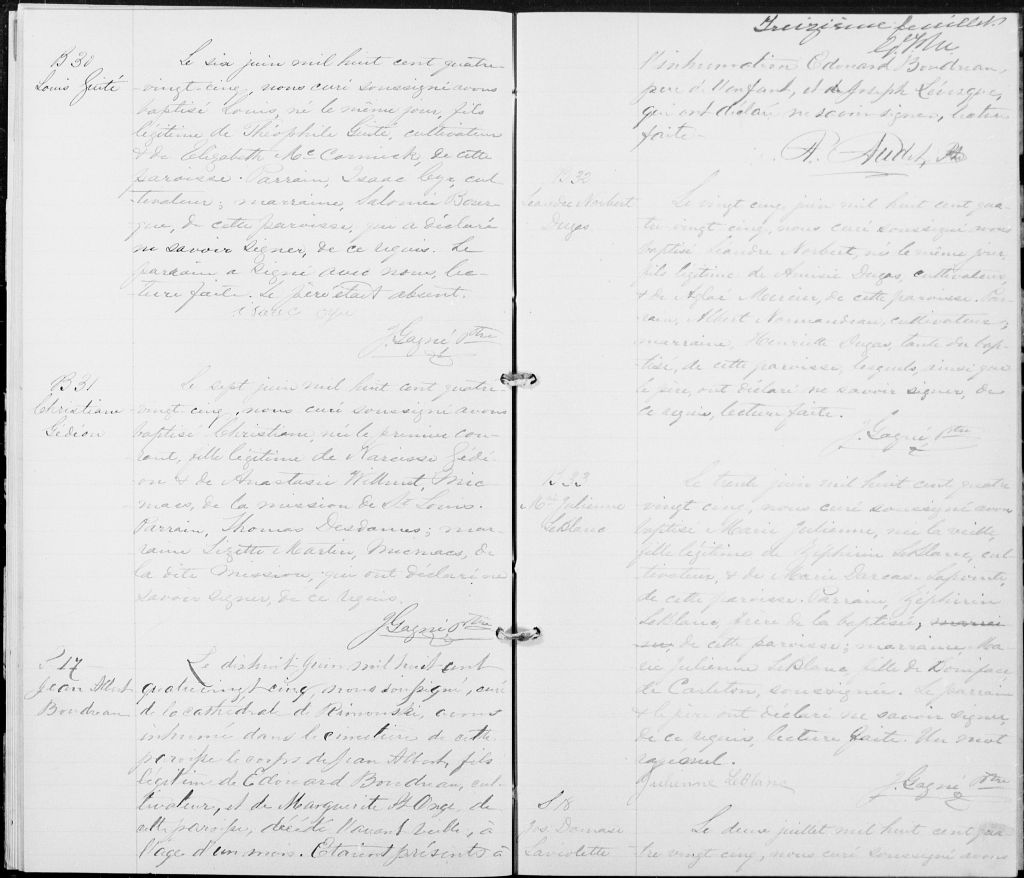 B 30
Louis Guité
Le six juin mil huit cent quatre-
vingt cinq, nous curé soussigné avons
baptisé Louis, né le même jour, fils
légitime de Théophile Guité, cultivateur
& de Elizabeth McCormick, de cette
paroisse. Parrain, Isaac Cyr, cul
tivateur; marraine, Salomée Bour-
que, de cette paroisse, qui a déclaré
ne savoir signer, de ce requis. Le
parrain a signé avec nous, lec-
ture faite. Le père était absent.
Isaac Cyr
J. Gagné Ptre
B 31
Christiane
Gédéon
Le sept juin mil huit cent quatre-
vingt cinq, nous curé soussigné avons
baptisé Christiane, née le premier cou-
rant, fille légitime de Narcisse Gédé-
on & de Anastasie Willmet, Mic
macs, de la mission de Ste Louis.
Parrain, Thomas Desdames; mar-
raine Lizette Martin, Micmacs, de
la dite Mission, qui ont déclaré ne
savoir signer, de ce requis.
J. Gagné Ptre
S 17
Jean Albert
Boudreau
Le dishuit Juin mil huit cent
quatrevingt cinq, nous soussigné, curé
de la cathédrale de Rimouski, avons
inhumé dans le cimetière de cette
paroisse le corps de Jean Albert, fils
légitime de Edouard Boudreau, cul-
tivateur, et de Marguerite St Onge, de
cette paroisse, décédé l'avant veille, à
l'age d'un mois. Etaient présents à
Treizième feuillet
l'inhumation Edouard Boudreau,
père de l'enfant, et de Joseph Lévesque,
qui ont déclaré ne savoir signer, lecture
faite.
A. Audet, Ptre
B 32
Léandre Norbert
Dugas
Le vingt cinq juin mil huit cent qua-
tre-vingt cinq, nous curé soussigné avons
baptisé Léandre Norbert, né le même jour,
fils légitime de Amisée Dugas, cultivateur,
& de Aglaé Mercier, de cette paroisse. Par-
rain, Albert Normandeau, cultivateur;
marraine, Henriette Dugas, tante du bap-
tisé, de cette paroisse, lesquels, ainsi que
le père, ont déclaré ne savoir signer, de
ce requis, lecture faite.
J. Gagné Ptre
B 33
Mie Julienne
LeBlanc
Le trente juin mil huit cent quatre
vingt cinq, nous curé soussigné avons
baptisé Marie Julienne, née la veille,
fille légitime de Zéphirin LeBlanc, cul-
tivateur, & de Marie Dorcase Lapointe,
de cette paroisse. Parrain, Zéphirin
LeBlanc, frère de la baptisée,
de cette paroisse; marraine, Ma-
rie Julienne LeBlanc, fille de Boniface
de Carleton, soussignée. Le parrain
& le père ont déclaré ne savoir signer,
de ce requis, lecture faite. Un mot
rayé nul.
Julienne LeBlanc
J. Gagné Ptre
S 18
Jos Damase
Laviolette
Le deux juillet mil huit cent qua
tre vingt cinq, nous curé soussigné avons